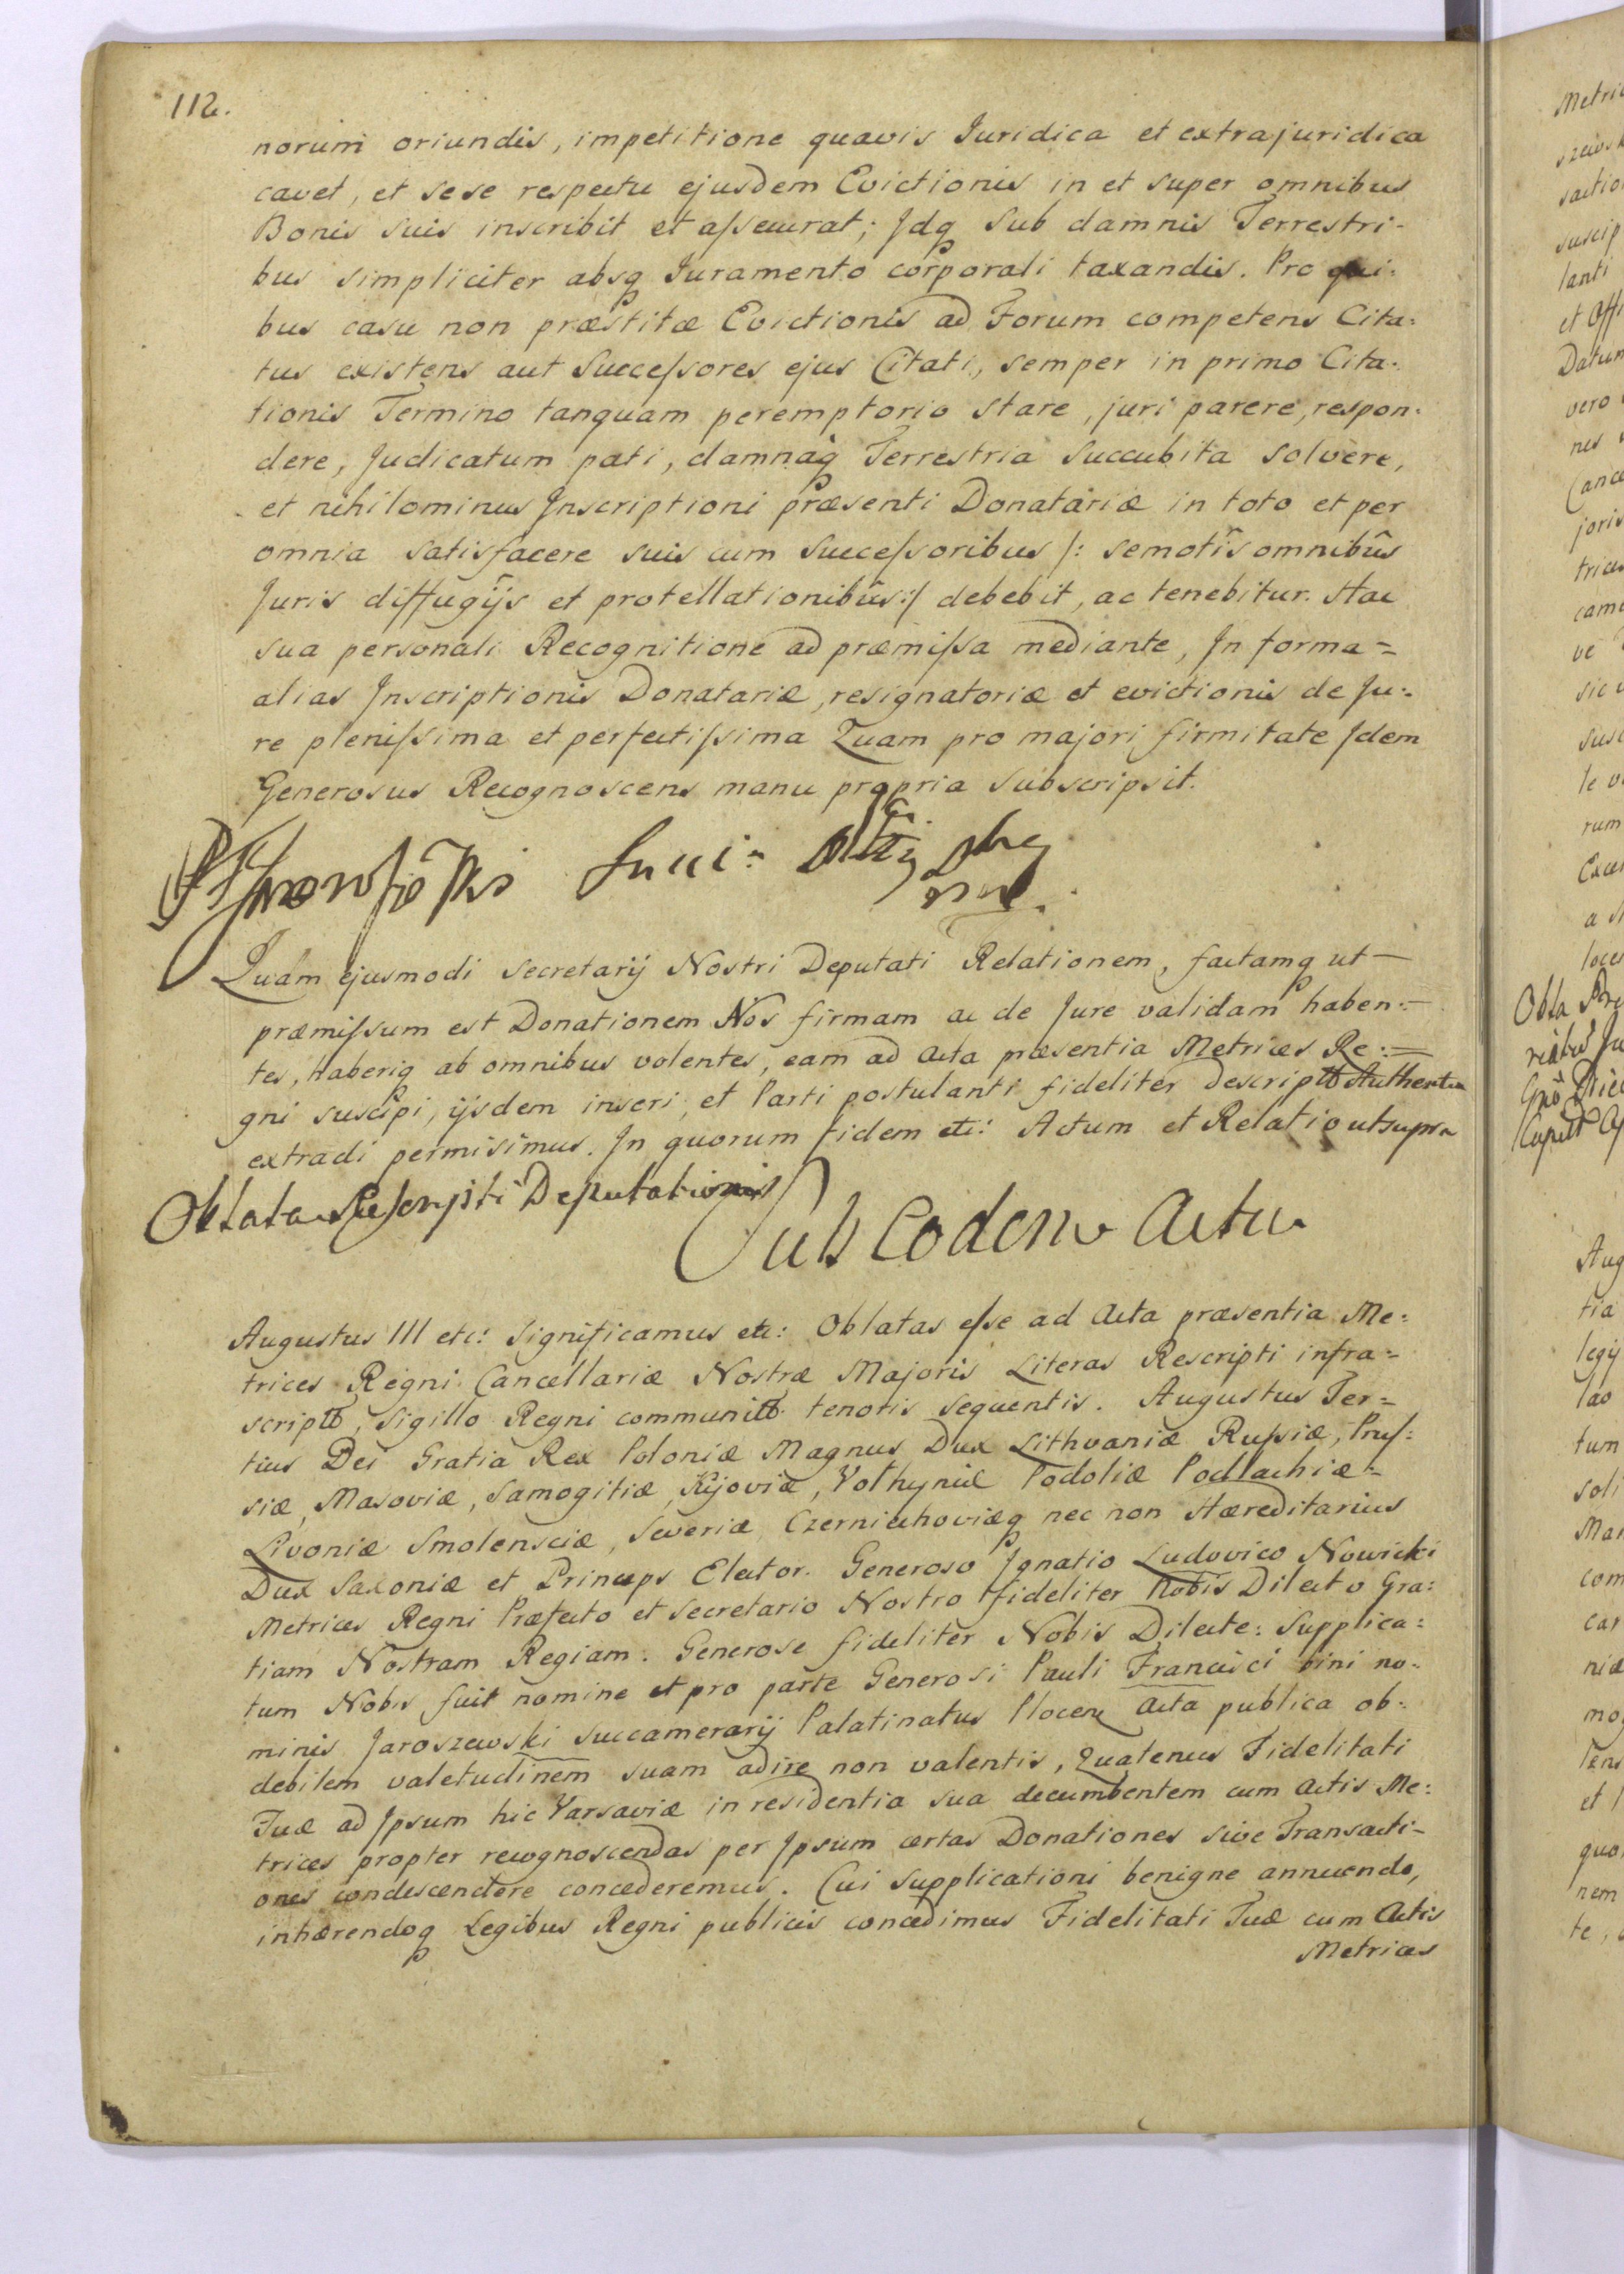 112.
norum oriundis, impetitione quavis Juridica et extrajuridica
cavet, et sese respectu ejusdem Evictionis in et super omnibus
Bonis suis inscribit et aſsecurat; Jdq sub damnis Terrestri-
bus simpliciter absq Juramento corporali taxandis. Pro qui:
bus casu non præstitæ Evictionis ad Forum competens Cita:
tus existens aut Succeſsores ejus Citati, semper in primo Cita:
tionis Termino tanquam peremptorio stare, juri parere, respon:
dere, Judicatum pati, damnaq Terrestria Succubita solvere,
et nihilominus Jnscriptioni præsenti Donatariæ in toto et per
omnia satisfacere suis cum Succeſsoribus /: semotis omnibus
Juris diffugijs et protellationibus:/ debebit, ac tenebitur. Hac
sua personali Recognitione ad præmiſsa mediante, Jn forma =
alias Jnscriptionis Donatariæ, resignatoriæ et evictionis de Ju:
re pleniſsima et perfectiſsima Quam pro majori firmitate Jdem
Generosus Recognoscens manu propria subscripsit.
Quam ejusmodi Secretarij Nostri Deputati Relationem, factamq ut —
præmiſsum est Donationem Nos firmam ac de Jure validam haben:
tes, Haberiq ab omnibus volentes, eam ad Acta præsentia Metrices Re: =
gni suscipi, ijsdem inseri, et Parti postulanti fideliter descriptt Authentice
extradi permisimus. Jn quorum fidem etc: Actum et Relatio ut supra
Oblata Rescripti Deputationis
Sub Eodem Actu
Augustus III etc: Significamus etc: Oblatas eſse ad Acta præsentia Me:
trices Regni Cancellariæ Nostræ Majoris Literas Rescripti infra =
scriptt, Sigillo Regni communitt tenoris sequentis. Augustus Ter =
tius Dei Gratia Rex Poloniæ Magnus Dux Lithvaniæ Ruſsiæ, Pruſ:
siæ, Masoviæ, Samogitiæ, Kijoviæ, Volhyniæ Podoliæ Podlachiæ =
Livoniæ Smolensciæ, Severiæ Czerniechoviæq nec non Hæreditarius
Dux Saxoniæ et Princeps Elector. Generoso Jgnatio Ludovico Nowicki
Metrices Regni Præfecto et Secretario Nostro fideliter Nobis Dilecto Gra:
tiam Nostram Regiam. Generose fideliter Nobis Dilecte: Supplica:
tum Nobis fuit nomine et pro parte Generosi Pauli Francisci bini no:
minis Jaroszewski Succamerarij Palatinatus Plocen Acta publica ob:
debilem valetudinem suam adire non valentis, Quatenus Fidelitati
Tuæ ad Jpsum hic Varsaviæ in residentia sua decumbentem cum Actis Me:
trices propter recognoscendas per Jpsum certas Donationes sive Transacti-
ones condescendere concederemus. Cui supplicationi benigne annuendo,
inhærendoq Legibus Regni publicis concedimus Fidelitati Tuæ cum Actis
Metrices